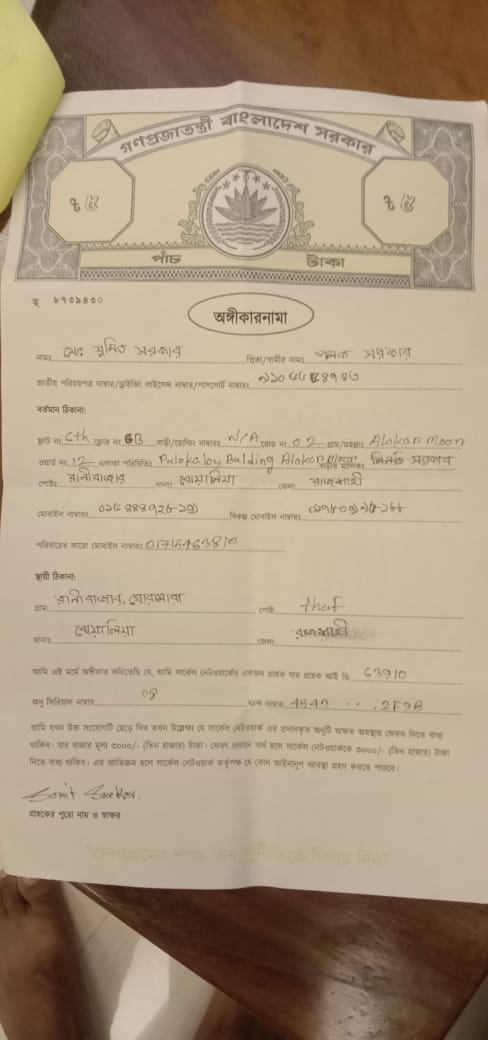 গণপ্রজাতন্ত্রী বাংলাদেশ সরকার
৳ ৫ ৳ ৫
পাঁচ টাকা
অঙ্গীকারনামা
নামঃ মোঃ সুমিত সরকার পিতা/স্বামীর নামঃ সরকার
জাতীয় পরিচয়পত্র নাম্বার/ড্রাইভিং লাইসেন্স নাম্বার/পাসপোর্ট নাম্বারঃ
বর্তমান ঠিকানাঃ
ফ্লাট নং 6th ফ্লোর নং 6B বাড়ী/হোল্ডিং নাম্বারঃ N/A রোড নং 02 গ্রাম/মহল্লাঃ Alokar Moor
ওয়ার্ড নং 12 এলাকা পরিচিতিঃ Pulokaloy Bulding Alokar Moor বাড়ীর মালিকঃ মিনতি সরকার
পোষ্টঃ রানীবাজার থানাঃ বোয়ালিয়া জেলাঃ রাজশাহী
মোবাইল নাম্বারঃ বিকল্প মোবাইল নাম্বারঃ
পরিবারের কারো মোবাইল নাম্বারঃ 01715463810
স্থায়ী ঠিকানাঃ
গ্রামঃ রানীবাজার, ঘোরামারা পোষ্টঃ
থানাঃ বোয়ালিয়া জেলাঃ রাজশাহী
আমি এই মর্মে অঙ্গীকার করিতেছি যে, আমি সার্কেল নেটওয়ার্কের একজন গ্রাহক যার গ্রাহক আই ডি 63910
অনু সিরিয়াল নাম্বার 08 ম্যাক নাম্বারঃ 4540 ... 2F9B
আমি যখন উক্ত সংযোগটি ছেড়ে দিব তখন উল্লেখ্য যে সার্কেল নেটওয়ার্ক এর প্রদানকৃত অনুটি অক্ষত অবস্থায় ফেরত দিতে বাধ্য
থাকিব। যার বাজার মূল্য ৩০০০/- (তিন হাজার) টাকা। ফেরৎ প্রদানে ব্যর্থ হলে সার্কেল নেটওয়ার্ককে ৩০০০/- (তিন হাজার) টাকা
দিতে বাধ্য থাকিব। এর ব্যতিক্রম হলে সার্কেল নেটওয়ার্ক কর্তৃপক্ষ যে কোন আইনানুগ ব্যবস্থা গ্রহণ করতে পারবে।
Somit Sarkar.
গ্রাহকের পুরো নাম ও স্বাক্ষর
"দেশপ্রেমের শপথ নিন, দুর্নীতিকে বিদায় দিন"